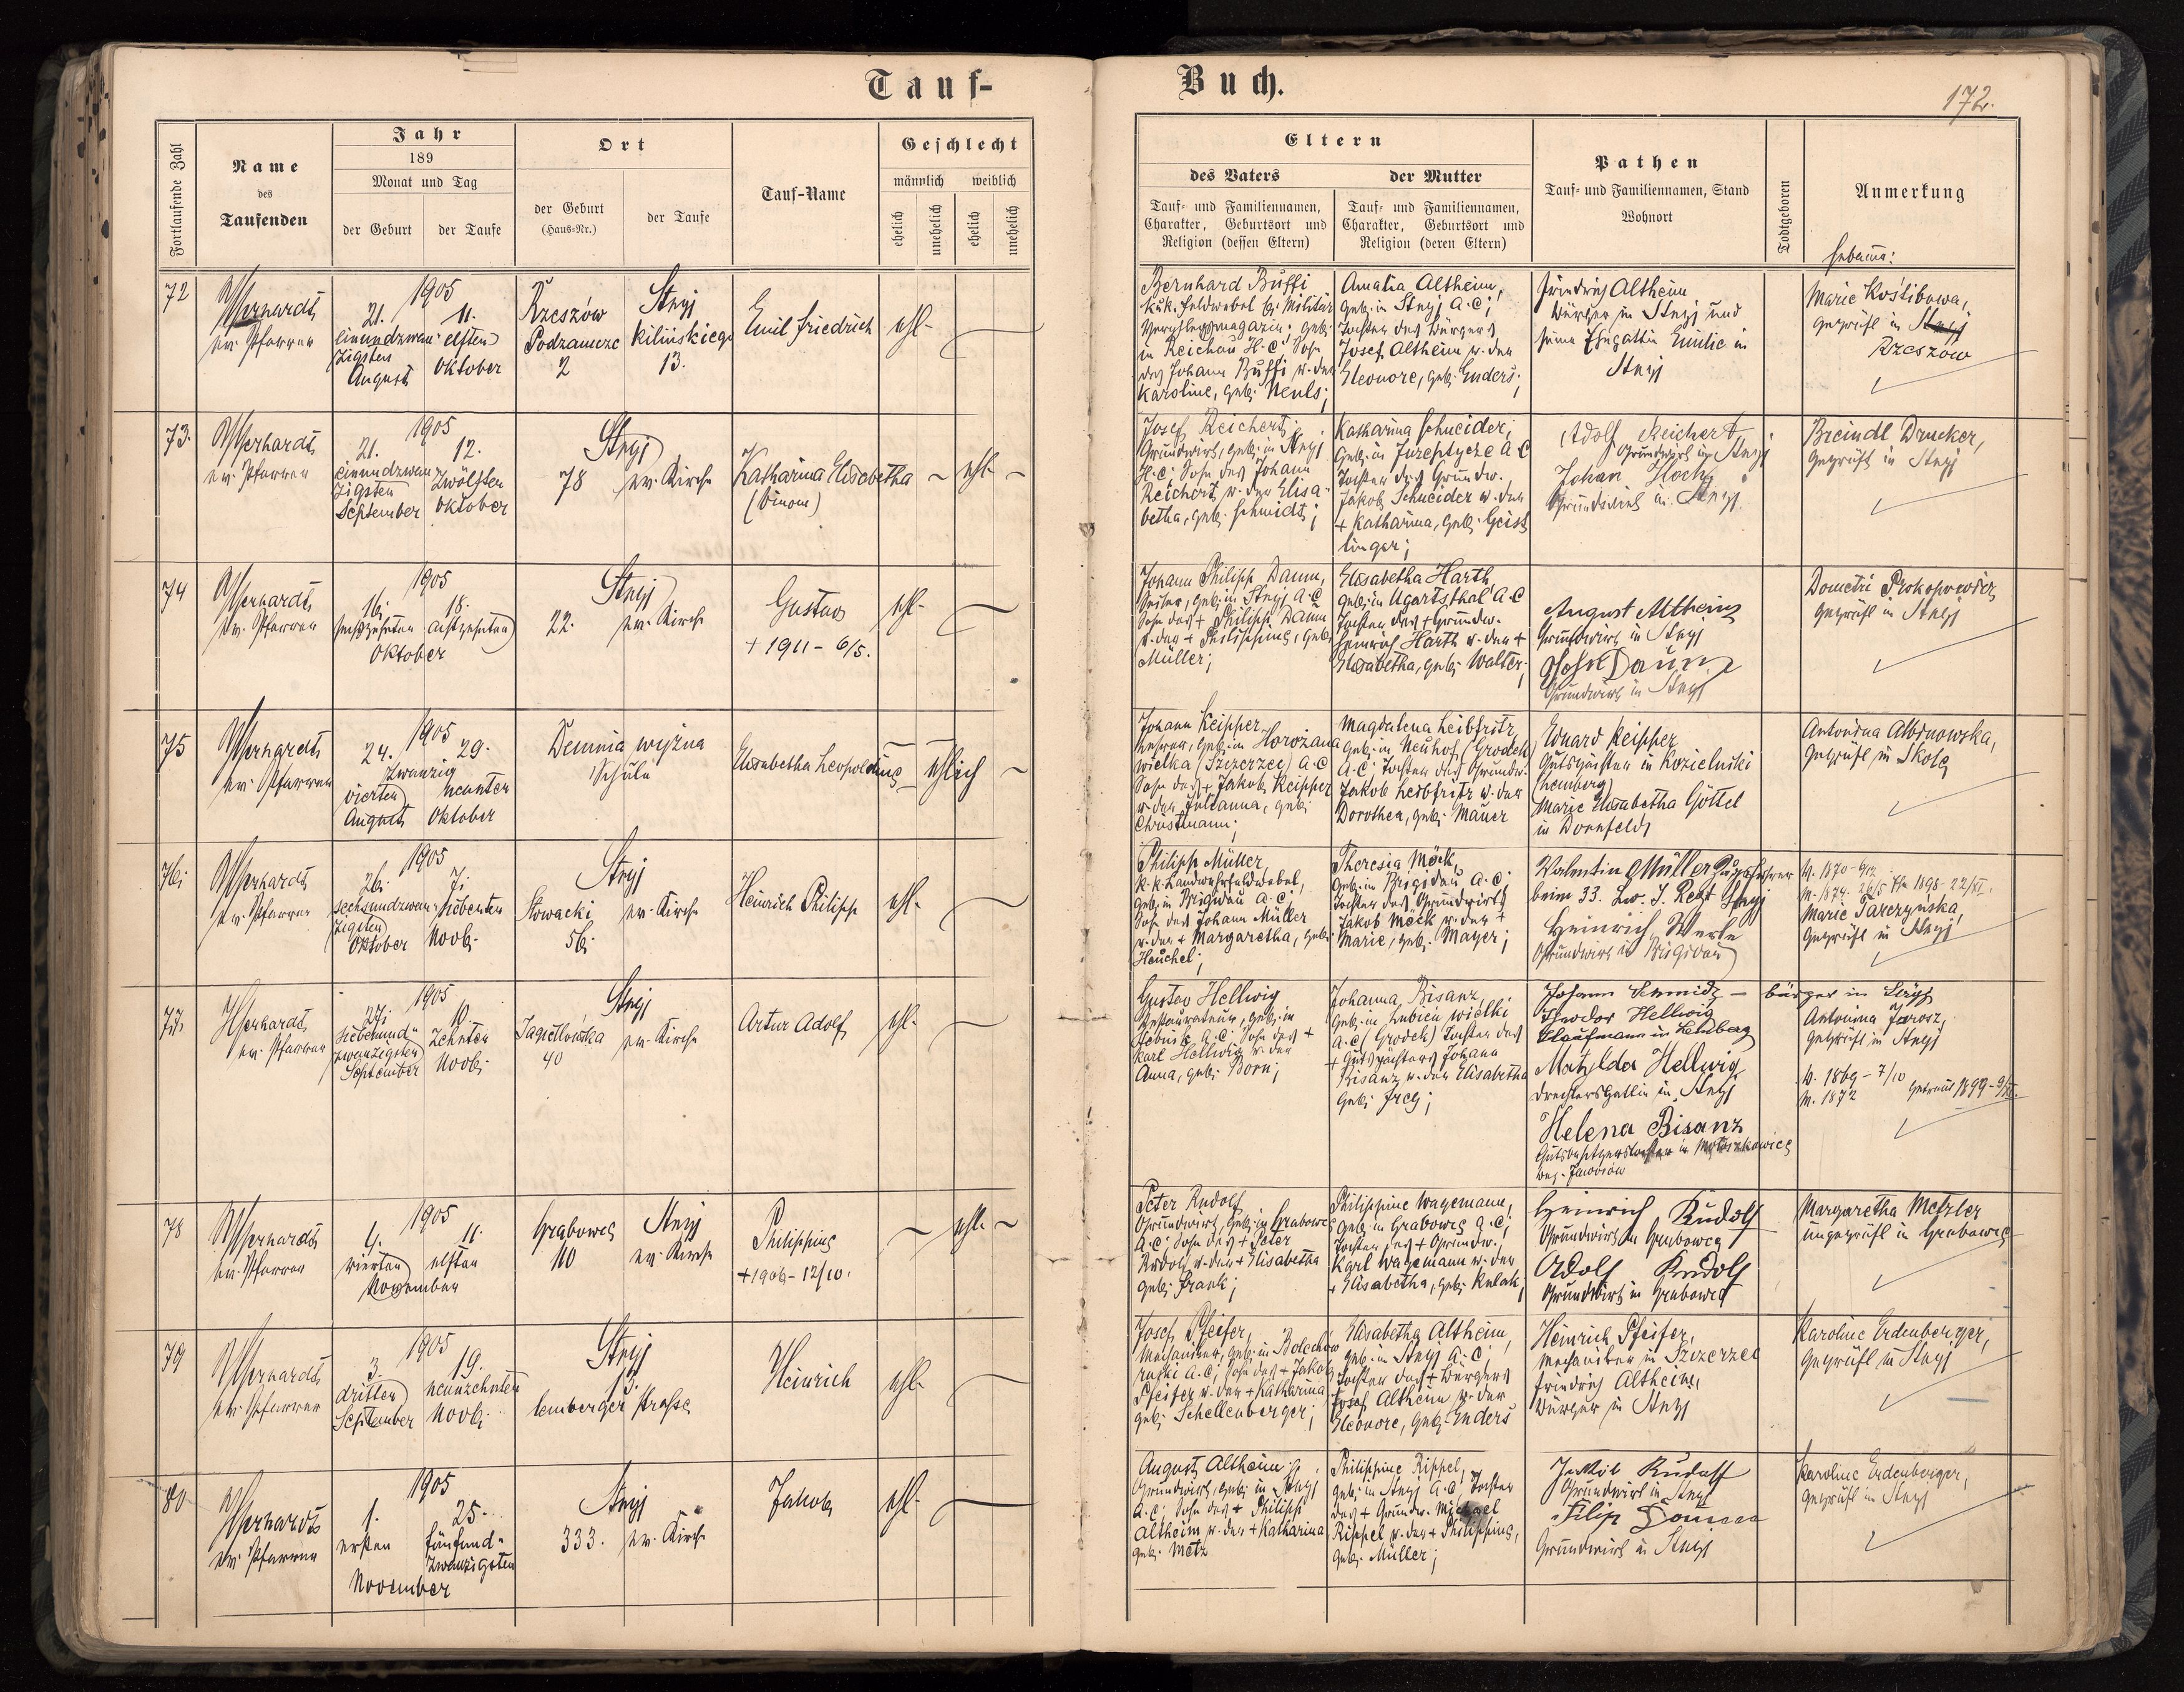 Tauf-
Buch.
172.
Fortlaufende Zahl
Name
des
Taufenden
Jahr
189
Monat und Tag
der Geburt
der Taufe
Ort
der Geburt
(Haus-Nr.)
der Taufe
Tauf-Name
Geschlecht
männlich
weiblich
ehelich
unehelich
ehelich
unehelich
Eltern
des Vaters
der Mutter
Tauf- und Familiennamen,
Charakter, Geburtsort und
Religion (dessen Eltern)
Tauf- und Familiennamen,
Charakter, Geburtsort und
Religion (deren Eltern)
Pathen
Tauf- und Familiennamen, Stand
Wohnort
Todtgeboren
Anmerkung
Hebamme:
72
ev. Pfarrer
1905
21.
einundzwan-
zigsten
August
11.
elften
Oktober
Rzeszów
Podzamcze
2
Stryj
Kilińskiego
13.
Emil Friedrich
ehl.
Bernhard Buffi
k.u.k. Feldwebel b. Militär
Verpflegsmagazin; geb.
in Reichau H.C. Sohn
des Johann Buffi u. der
Karoline, geb.
Amalia Altheim,
geb. in Stryj A.C;
Tochter des Bürgers
Josef Altheim u. der
Eleonore, geb. Enders;
Friedrich Altheim
Bürger in Stryj und
seine Ehegattin Emilie in
Stryj
Marie
geprüft in Stryj
Rzeszów
73.
ev. Pfarrer
1905
21.
einundzwan
zigsten
September
12.
zwölften
Oktober
Stryj
78
ev. Kirche
Katharina Elisabetha
ehl.
Josef Reichert,
Grundwirt, geb. in Stryj
H.C. Sohn des Johann
Reichert u. der Elisa-
betha, geb. Schmidt;
Katharina Schneider,
geb. in Juseptycze A C
Tochter des Grundw.
Jakob Schneider u. der
+ Katharina, geb. Geist
linger;
Adolf Reichert
Grundwirt in Stryj
Johan Hoch
Grundwirt in Stryj.
Breindl Drucker,
geprüft in Stryj
74
ev. Pfarrer
1905
16.
sechszehnten
18.
achtzehnten
Oktober
Stryj
22.
ev. Kirche
Gustav
+ 1911 - 6/5.
ehl.
Johann Philipp Daum,
Seiler, geb. in Stryj A.C
Sohn des + Philipp Daum
u. der + Philippine, geb.
Müller;
Elisabetha Harth
geb. in Ugartsthal A.C
Tochter des + Grundw.
Heinrich Harth u. der +
Elisabetha, geb. Walter;
August Altheim
Grundwirt in Stryj
Josef Daum
Grundwirt in Stryj
Dometri Prokopowicz
geprüft in Stryj
75
ev. Pfarrer
1905
24.
zwanzig
vierten
August
29.
neunten
Oktober
Demnia wyżna
Schule
Elisabetha Leopoldine
ehlich
Johann Keipper,
Lehrer, geb. in Horożana
wielka (Szczerzec) A.C
Sohn des + Jakob Keipper
u. der Julianna, geb.
Christmann;
Magdalena Leibfritz,
geb. in Neuhof (Grodek)
A.C. Tochter des Grundw.
Jakob Leibfritz u. der
Dorothea, geb. Mauer
Eduard Keipper
Gutspächter in Kozielniki
(Lemberg)
Marie Elisabetha Göttel
in Dornfeld
Antonina Albinowska,
geprüft in Skole
76.
ev. Pfarrer
1905
26.
sechsundzwan-
zigsten
Oktober
7.
siebenten
Novb.
Stryj
Słowacki
56.
ev. Kirche
Heinrich Philipp
ehl.
Philipp Müller,
k.k. Landwehrfeldwebel,
geb. in Brigidau A.C,
Sohn des Johann Müller
u. der + Margaretha, geb.
Heuchel;
Theresia Möck,
geb. in Brigidau A.C.
Tochter des Grundwirts
Jakob Möck u. der +
Marie, geb. Mayer;
Valentin Müller Zugsführer
beim 33. Lw. I. Regt Stryj
Heinrich Werle
Grundwirt in Brigidau
M. 1874. 26/5 1898 - 22/XI.
Marie Tarczyńska,
geprüft in Stryj
77.
ev. Pfarrer
1905
27.
siebenund-
zwanzigsten
September
10.
zehnten
Novb.
Stryj
Jagiellońska
40
ev. Kirche
Artur Adolf
ehl.
Gustav Hellwig
Restaurateur, geb. in
A.C. Sohn des +
Karl Hellwig u. der
Anna, geb. Born;
Johanna Bisanz,
geb. in Lubien wielki
A.C (Grodek) Tochter des
+ Gutspächters Johann
Bisanz u. der Elisabetha
geb. Frey;
Johann Schmidt - bürger in Stryj
Teodor Hellwig
Kaufmann in Lemberg
Mathilda Hellwig
Drechslersgattin in Stryj
Helena Bisanz
Gutsbesitzerstochter in
Bez. Jaworów
Antonina Jarosz,
geprüft in Stryj
V. 1869 - 7/10
M. 1872
getraut 1899 - 9/XI.
78
ev. Pfarrer
1905
4.
vierten
11.
elften
November
Grabowce
110
Stryj
ev. Kirche
Philippine
+ 1906 - 12/10.
ehl.
Peter Rudolf,
Grundwirt, geb. in Grabowce
A.C. Sohn des + Peter
Rudolf u. der + Elisabetha
geb. Frank;
Philippine Wagemann,
geb. in Grabowce A.C;
Tochter des + Grundw.
Karl Wagemann u. der
+ Elisabetha, geb. Kulak;
Heinrich Rudolf
Grundwirt in Grabowce
Adolf Rudolf
Grundwirt in Grabowce
Margaretha Metzler
ungeprüft in Grabowce
79
ev. Pfarrer
1905
3.
dritten
September
19.
neunzehnten
Novb.
Stryj
13.
Lemberger Strasse
Heinrich
ehl.
Josef Pfeifer,
Mechaniker, geb. in Bolechów
ruski A.C, Sohn des + Jakob
Pfeifer u. der + Katharina,
geb. Schellenberger;
Elisabetha Altheim,
geb. in Stryj A.C.
Tochter des + Bürgers
Josef Altheim u. der
Eleonore, geb. Enders
Heinrich Pfeifer,
Mechaniker in Szczerzec
Friedrich Altheim,
Bürger in Stryj
Karoline Erdenberger,
geprüft in Stryj
80
ev. Pfarrer
1905
1.
ersten
25.
fünfund-
zwanzigsten
November
Stryj
333.
ev. Kirche
Jakob
ehl.
August Altheim,
Grundwirt, geb. in Stryj
A.C; Sohn des + Philipp
Altheim u. der + Katharina
geb. Metz
Philippine Rippel,
geb. in Stryj A.C, Tochter
des + Grundw. Michael
Rippel u. der + Philippine,
geb. Müller;
Jakob Rudolf
Grundwirt in Stryj
Filip Daum
Grundwirt in Stryj
Karoline Erdenberger,
geprüft in Stryj